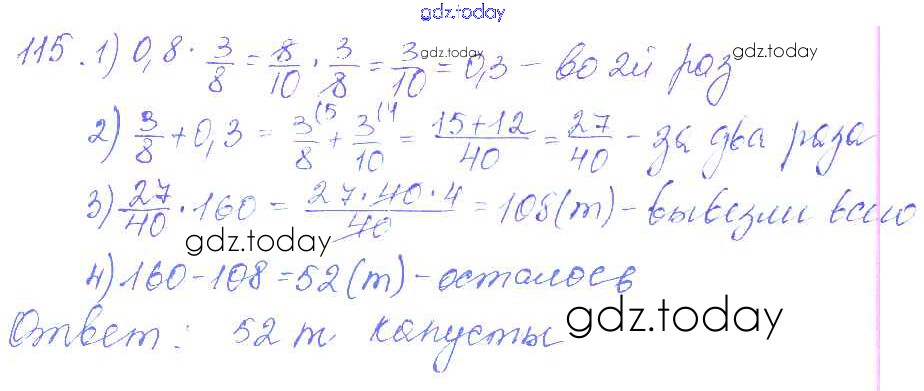 gdz.today
115. 1) 0,8 · 3/8 = 8/10 · 3/8 = 3/10 = 0,3 – во 2й раз
gdz.today
gdz.today
2) 3/8 + 0,3 = 3(5/8 + 3(4/10 = 15+12/40 = 27/40 – за два раза
3) 27/40 · 160 = 27·40·4/40 = 108 (т) – вывезли всего
gdz.today
4) 160 – 108 = 52 (т) – осталось
Ответ: 52 т. капусты
gdz.today